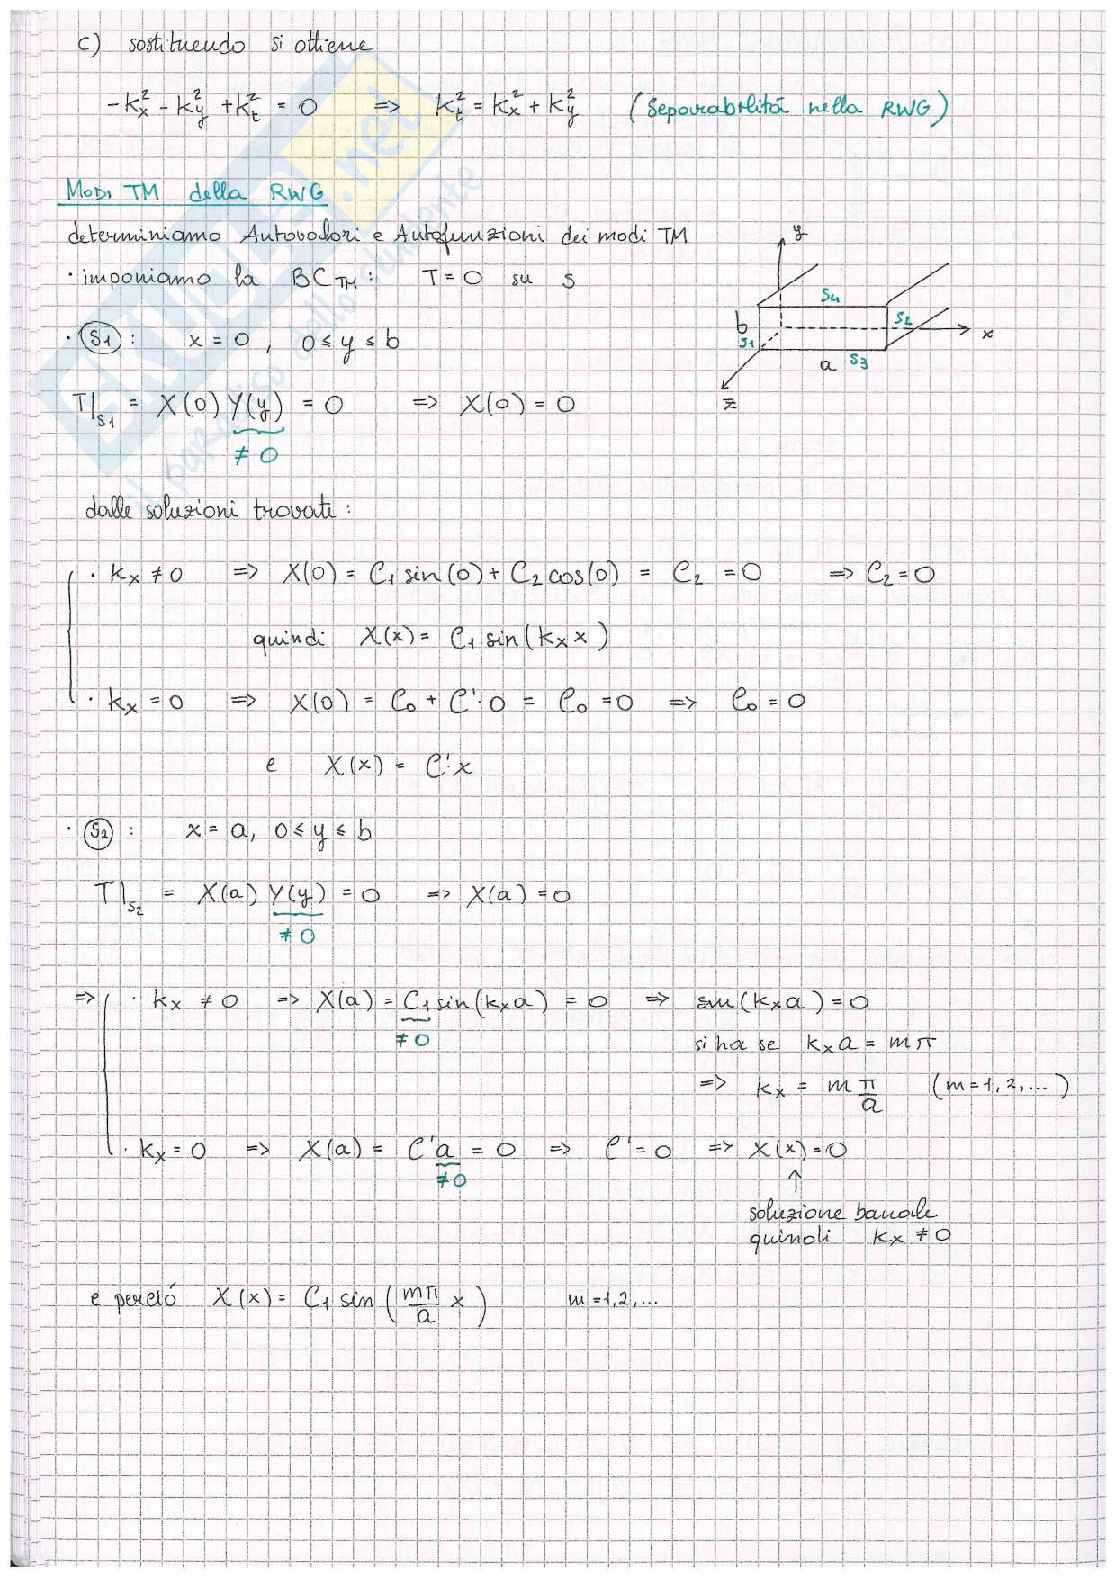 c) sostituendo si ottiene
-kx² - ky² + kt² = 0 => kt² = kx² + ky² (Separabilità nella RWG)
Modi TM della RWG
determiniamo Autovalori e Autofunzioni dei modi TM
· imponiamo la BC_TM : T=0 su S
· S1 : x = 0 , 0 ≤ y ≤ b
y
S4
b
S1
S2
x
a
S3
z
T|s1 = X(0) Y(y) = 0 => X(0) = 0
≠ 0
dalle soluzioni trovate :
· kx ≠ 0 => X(0) = C1 sin(0) + C2 cos(0) = C2 = 0 => C2 = 0
quindi X(x) = C1 sin(kx x)
· kx = 0 => X(0) = C0 + C'·0 = C0 = 0 => C0 = 0
e X(x) = C'·x
· S2 : x = a, 0 ≤ y ≤ b
T|s2 = X(a) Y(y) = 0 => X(a) = 0
≠ 0
=> · kx ≠ 0 => X(a) = C1 sin(kx a) = 0 => sin(kx a) = 0
≠ 0
si ha se kx a = mπ
=> kx = m π/a (m = 1, 2, ...)
· kx = 0 => X(a) = C'a = 0 => C' = 0 => X(x) = 0
≠ 0
↑
soluzione banale
quindi kx ≠ 0
e perciò X(x) = C1 sin(mπ/a x) m = 1, 2, ...
.net